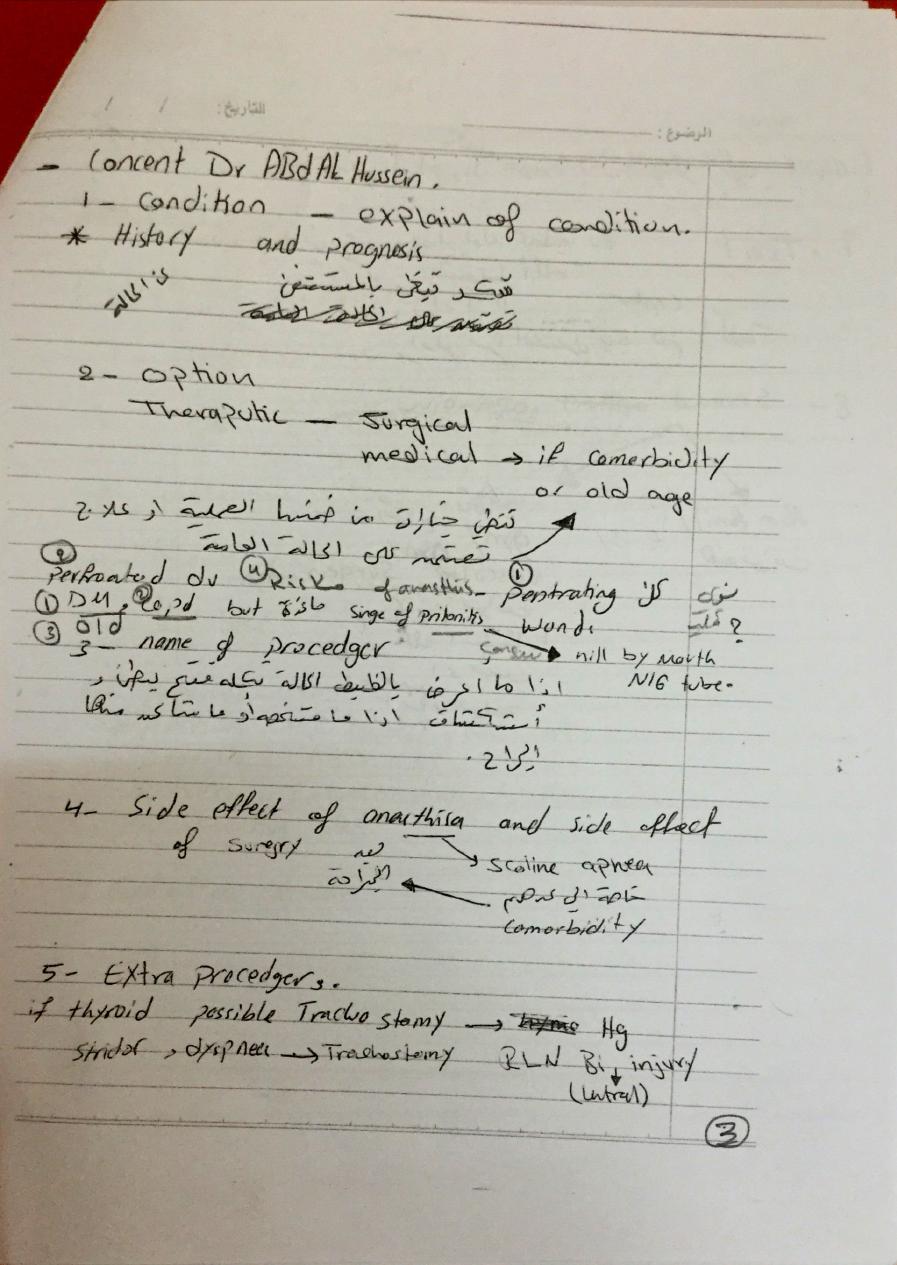 التاريخ: / /
الموضوع:
- Concent Dr ABdAL Hussein.
1 - Condition - explain of condition.
* History and prognesis
عن الحالة
شكد تبقى بالمستشفى
2 - option
Theraputic - Surgical
medical → if comerbidity
or old age
تنطي خيارات من ضمنها العملية او علاج
تعتمد على الحالة العامة
② Perfroated du ④ Risks of anasthis- ① Pentrating
① DM, ② Copd but singe of pritonitis wond
③ old
3- name of procedger nill by mouth
NIG tube.
اذا ما اعرف بالظبط الحالة
أستكشاف اذا ما مشخصه أو ما متأكد منها
الجراح.
4- Side effect of anaethisa and side effect
of suregry بعد الجراحة
scoline apnea
خاصة الي عدهم
comorbidity
5- Extra procedgers.
if thyroid possible Tracho stomy → Hg
stridor, dyspnea → Trachostomy RLN Bi injury
(latral)
3